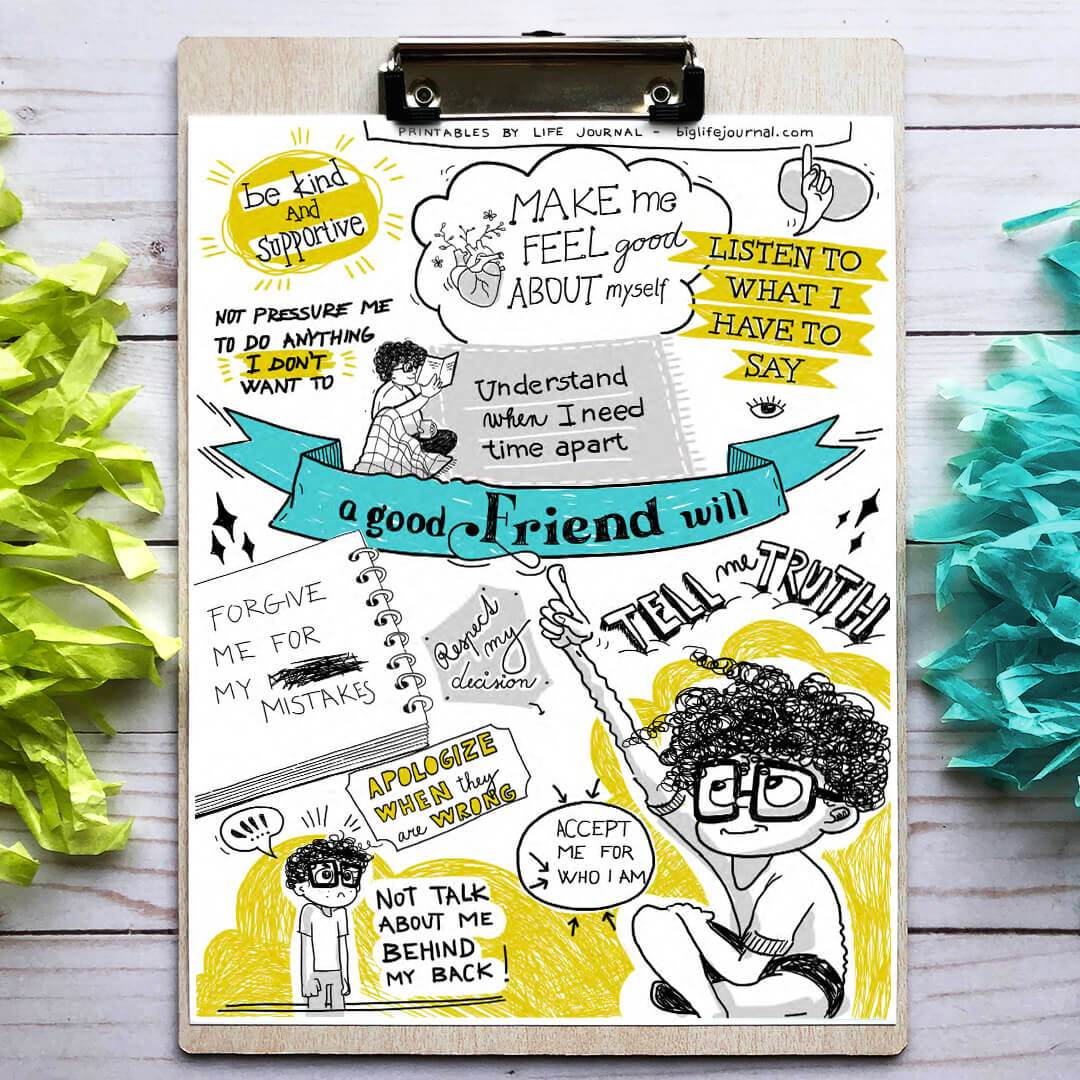 PRINTABLES BY LIFE JOURNAL - biglifejournal.com
be kind
AND
supportive
MAKE me
FEEL good
ABOUT myself
LISTEN TO
WHAT I
HAVE TO
SAY
NOT PRESSURE ME
TO DO ANYTHING
I DON'T
WANT TO
Understand
when I need
time apart
a good Friend will
FORGIVE
ME FOR
MY MISTAKES
Respect
my
decision
TELL me TRUTH
APOLOGIZE
WHEN they
are WRONG
ACCEPT
ME FOR
WHO I AM
!!!!
NOT TALK
ABOUT ME
BEHIND
MY BACK!